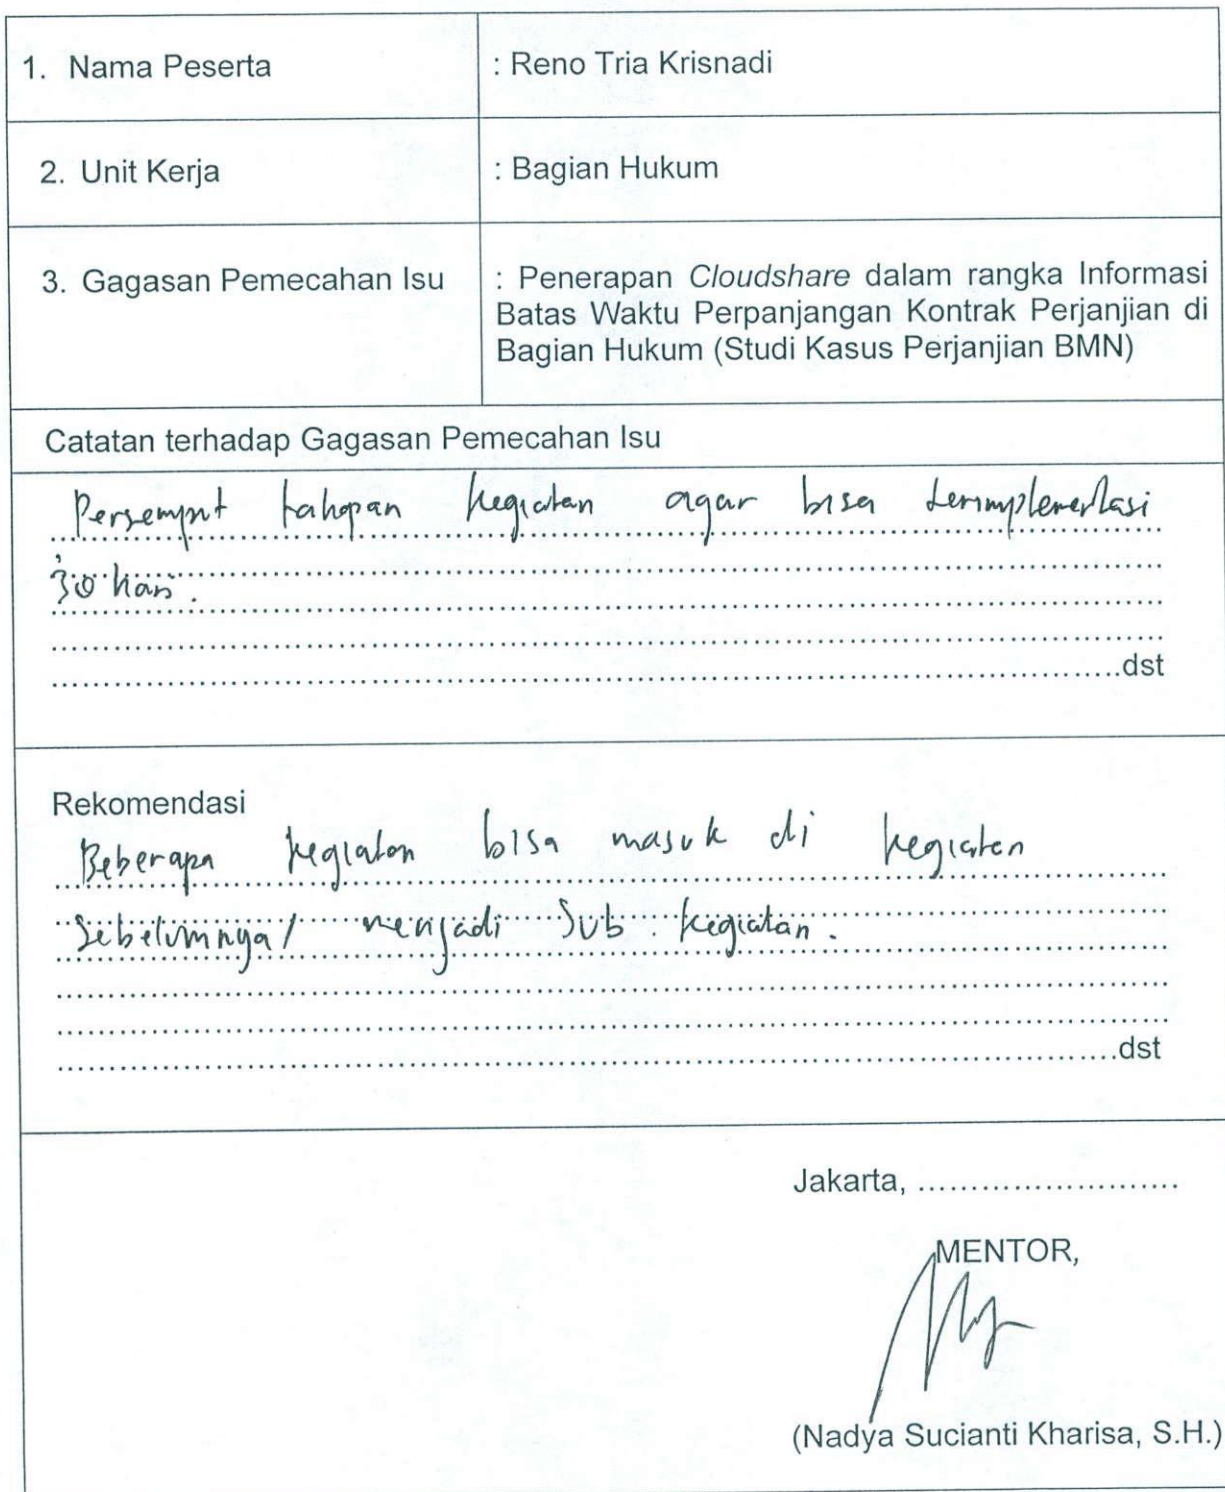 1. Nama Peserta : Reno Tria Krisnadi
2. Unit Kerja : Bagian Hukum
3. Gagasan Pemecahan Isu : Penerapan Cloudshare dalam rangka Informasi
Batas Waktu Perpanjangan Kontrak Perjanjian di
Bagian Hukum (Studi Kasus Perjanjian BMN)
Catatan terhadap Gagasan Pemecahan Isu
Persempit tahapan kegiatan agar bisa terimplementasi
30 hari.
dst
Rekomendasi
Beberapa kegiatan bisa masuk di kegiatan
Sebelumnya / menjadi Sub kegiatan.
dst
Jakarta, ..........................
MENTOR,
(Nadya Sucianti Kharisa, S.H.)